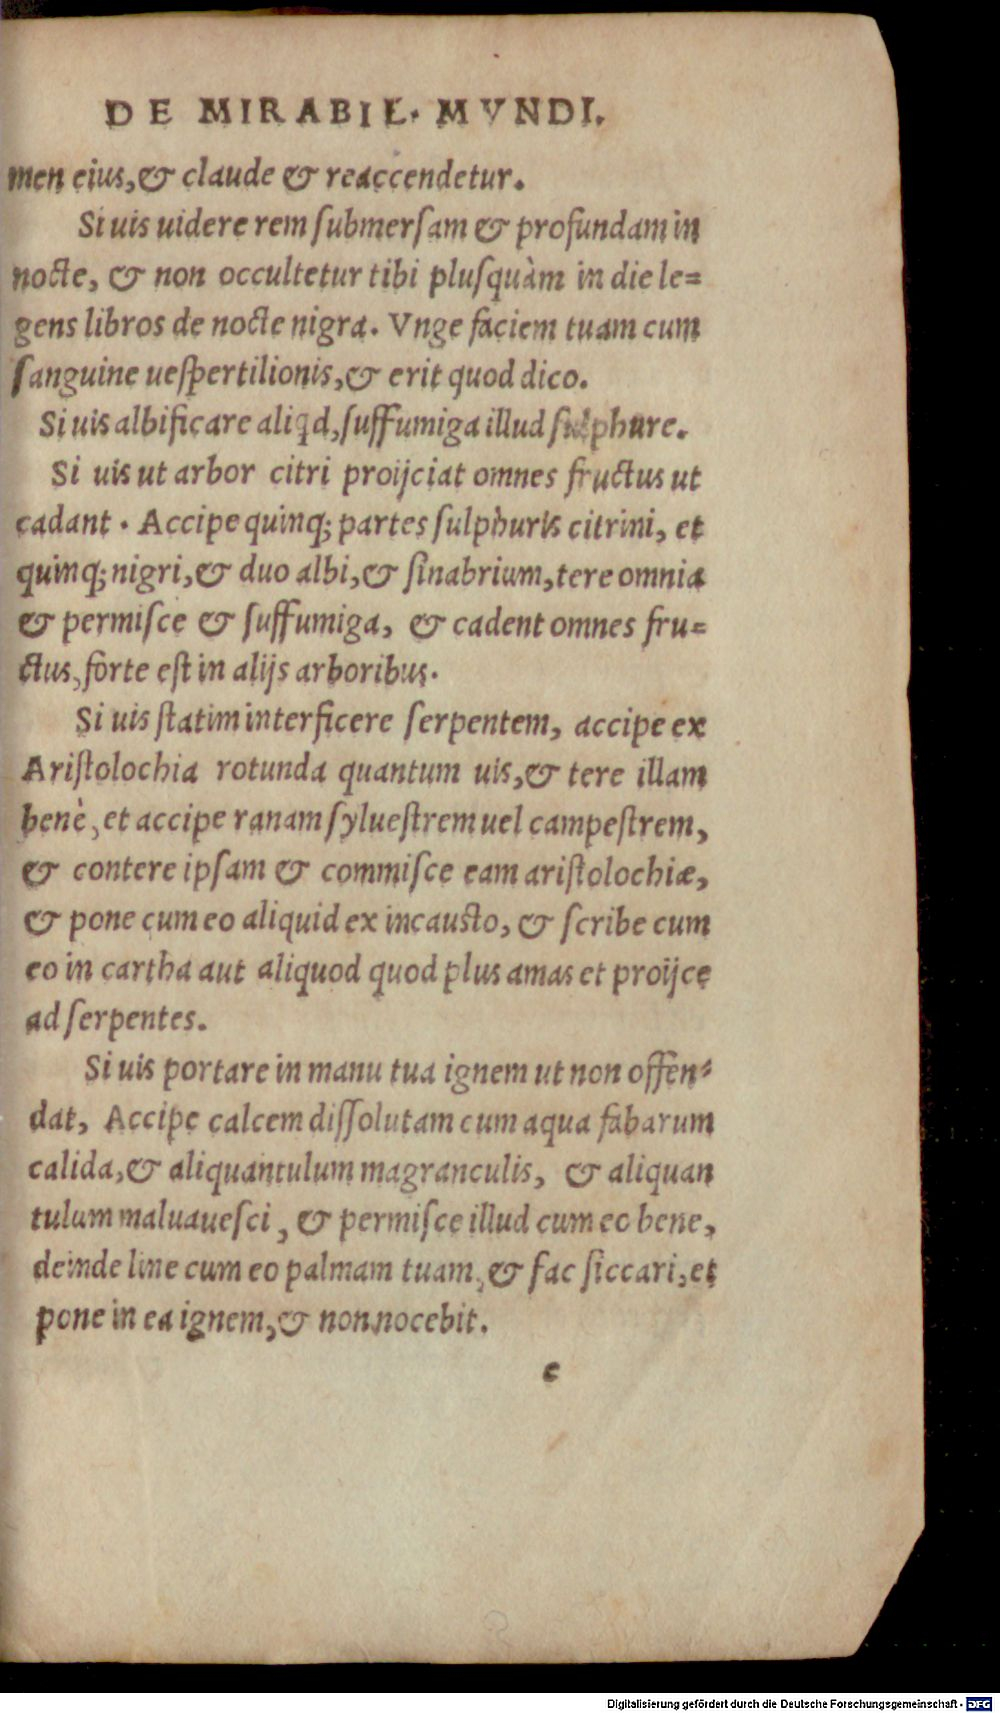 DE MIRABIL. MVNDI.
men eius, & claude & reaccendetur.
Si uis uidere rem ſubmerſam & profundam in
nocte, & non occultetur tibi pluſquàm in die le=
gens libros de nocte nigra. Vnge faciem tuam cum
ſanguine ueſpertilionis, & erit quod dico.
Si uis albificare aliqd, ſuffumiga illud ſulphure.
Si uis ut arbor citri proijciat omnes fructus ut
cadant. Accipe quinq; partes ſulphuris citrini, et
quinq; nigri, & duo albi, & ſinabrium, tere omnia
& permiſce & ſuffumiga, & cadent omnes fru=
ctus, forte eſt in alijs arboribus.
Si uis ſtatim interficere ſerpentem, accipe ex
Ariſtolochia rotunda quantum uis, & tere illam
benè, et accipe ranam ſylueſtrem uel campeſtrem,
& contere ipſam & commiſce eam ariſtolochiæ,
& pone cum eo aliquid ex incauſto, & ſcribe cum
eo in cartha aut aliquod quod plus amas et proijce
ad ſerpentes.
Si uis portare in manu tua ignem ut non offen=
dat, Accipe calcem diſſolutam cum aqua fabarum
calida, & aliquantulum magranculis, & aliquan
tulum maluaueſci, & permiſce illud cum eo bene,
deinde line cum eo palmam tuam, & fac ſiccari, et
pone in ea ignem, & non nocebit.
c
Digitalisierung gefördert durch die Deutsche Forschungsgemeinschaft - DFG